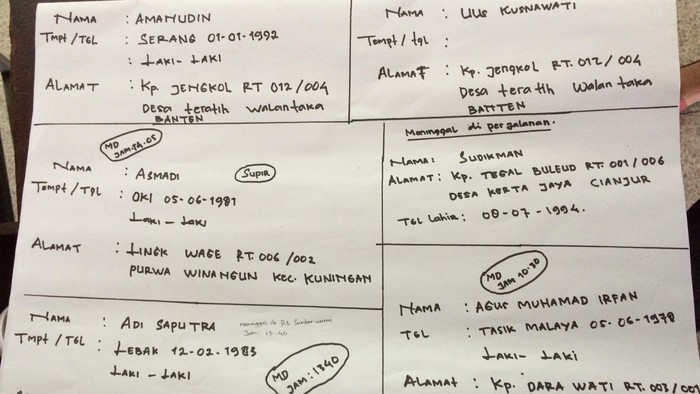 NAMA : AMANUDIN
TMPT/TGL : SERANG 01-01-1992
: LAKI-LAKI
ALAMAT : Kp. JENGKOL RT 012/004
Desa teratih walantaka
BANTEN
NAMA : LILIS KUSNAWATI
Tempt/tgl :
ALAMAT : Kp. jengkol RT. 012/004
Desa teratih Walantaka
BANTEN
MD
JAM
NAMA : ASMADI
SUPIR
TEMPT/TGL : OKI 05-06-1981
LAKI-LAKI
ALAMAT : LINGK WAGE RT. 006/002
PURWA WINANGUN KEC. KUNINGAN
Meninggal di perjalanan.
NAMA: SUDIKMAN
ALAMAT: KP. TEGAL BULEUD RT. 001/006
DESA KERTA JAYA CIANJUR
TGL Lahir: 08-07-1994.
NAMA : ADI SAPUTRA
meninggal di RS
Jam : 13.40
TMPT/TGL : LEBAK 12-02-1983
LAKI-LAKI
MD
JAM: 1340
MD
JAM 10.30
NAMA : AGUS MUHAMAD IRFAN
TGL : TASIK MALAYA 05-06-1978
LAKI-LAKI
ALAMAT : Kp. DARA WATI RT. 003/001